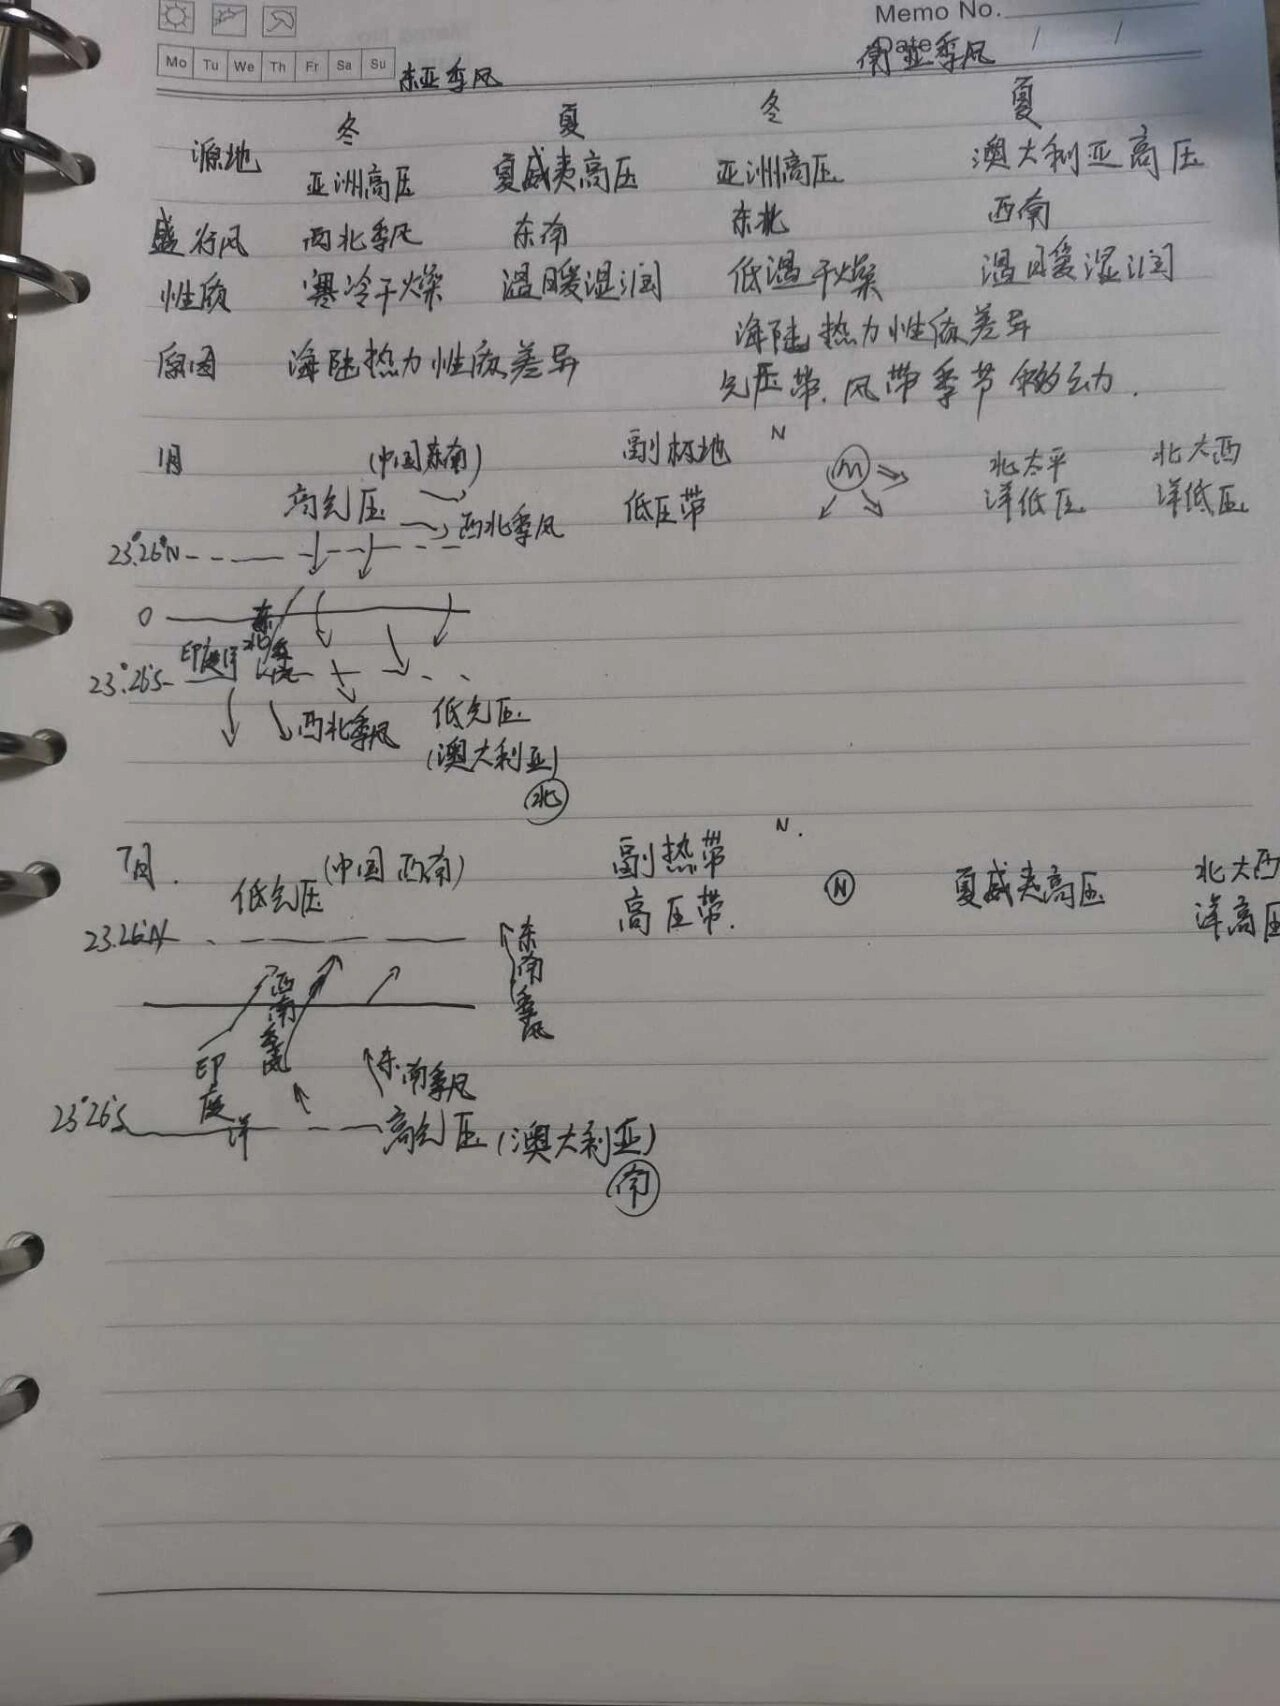 Memo No.
Date / /
Mo Tu We Th Fr Sa Su
东亚季风 南亚季风
冬 夏 冬 夏
源地 亚洲高压 夏威夷高压 亚洲高压 澳大利亚高压
盛行风 西北季风 东南 东北 西南
性质 寒冷干燥 温暖湿润 低温干燥 温暖湿润
原因 海陆热力性质差异 海陆热力性质差异
气压带、风带季节移动.
1月 (中国东南) 副极地 N 北太平 北大西
高气压 低压带 洋低压 洋低压
西北季风
23°26'N
0
东北季风
印度洋
23°26'S
西北季风 低气压
(澳大利亚)
北
7月. (中国西南) 副热带 N. 夏威夷高压 北大西
低气压 高压带. N 洋高压
23°26'N
东南季风
西南季风
印度洋
东南季风
23°26'S
高气压 (澳大利亚)
南